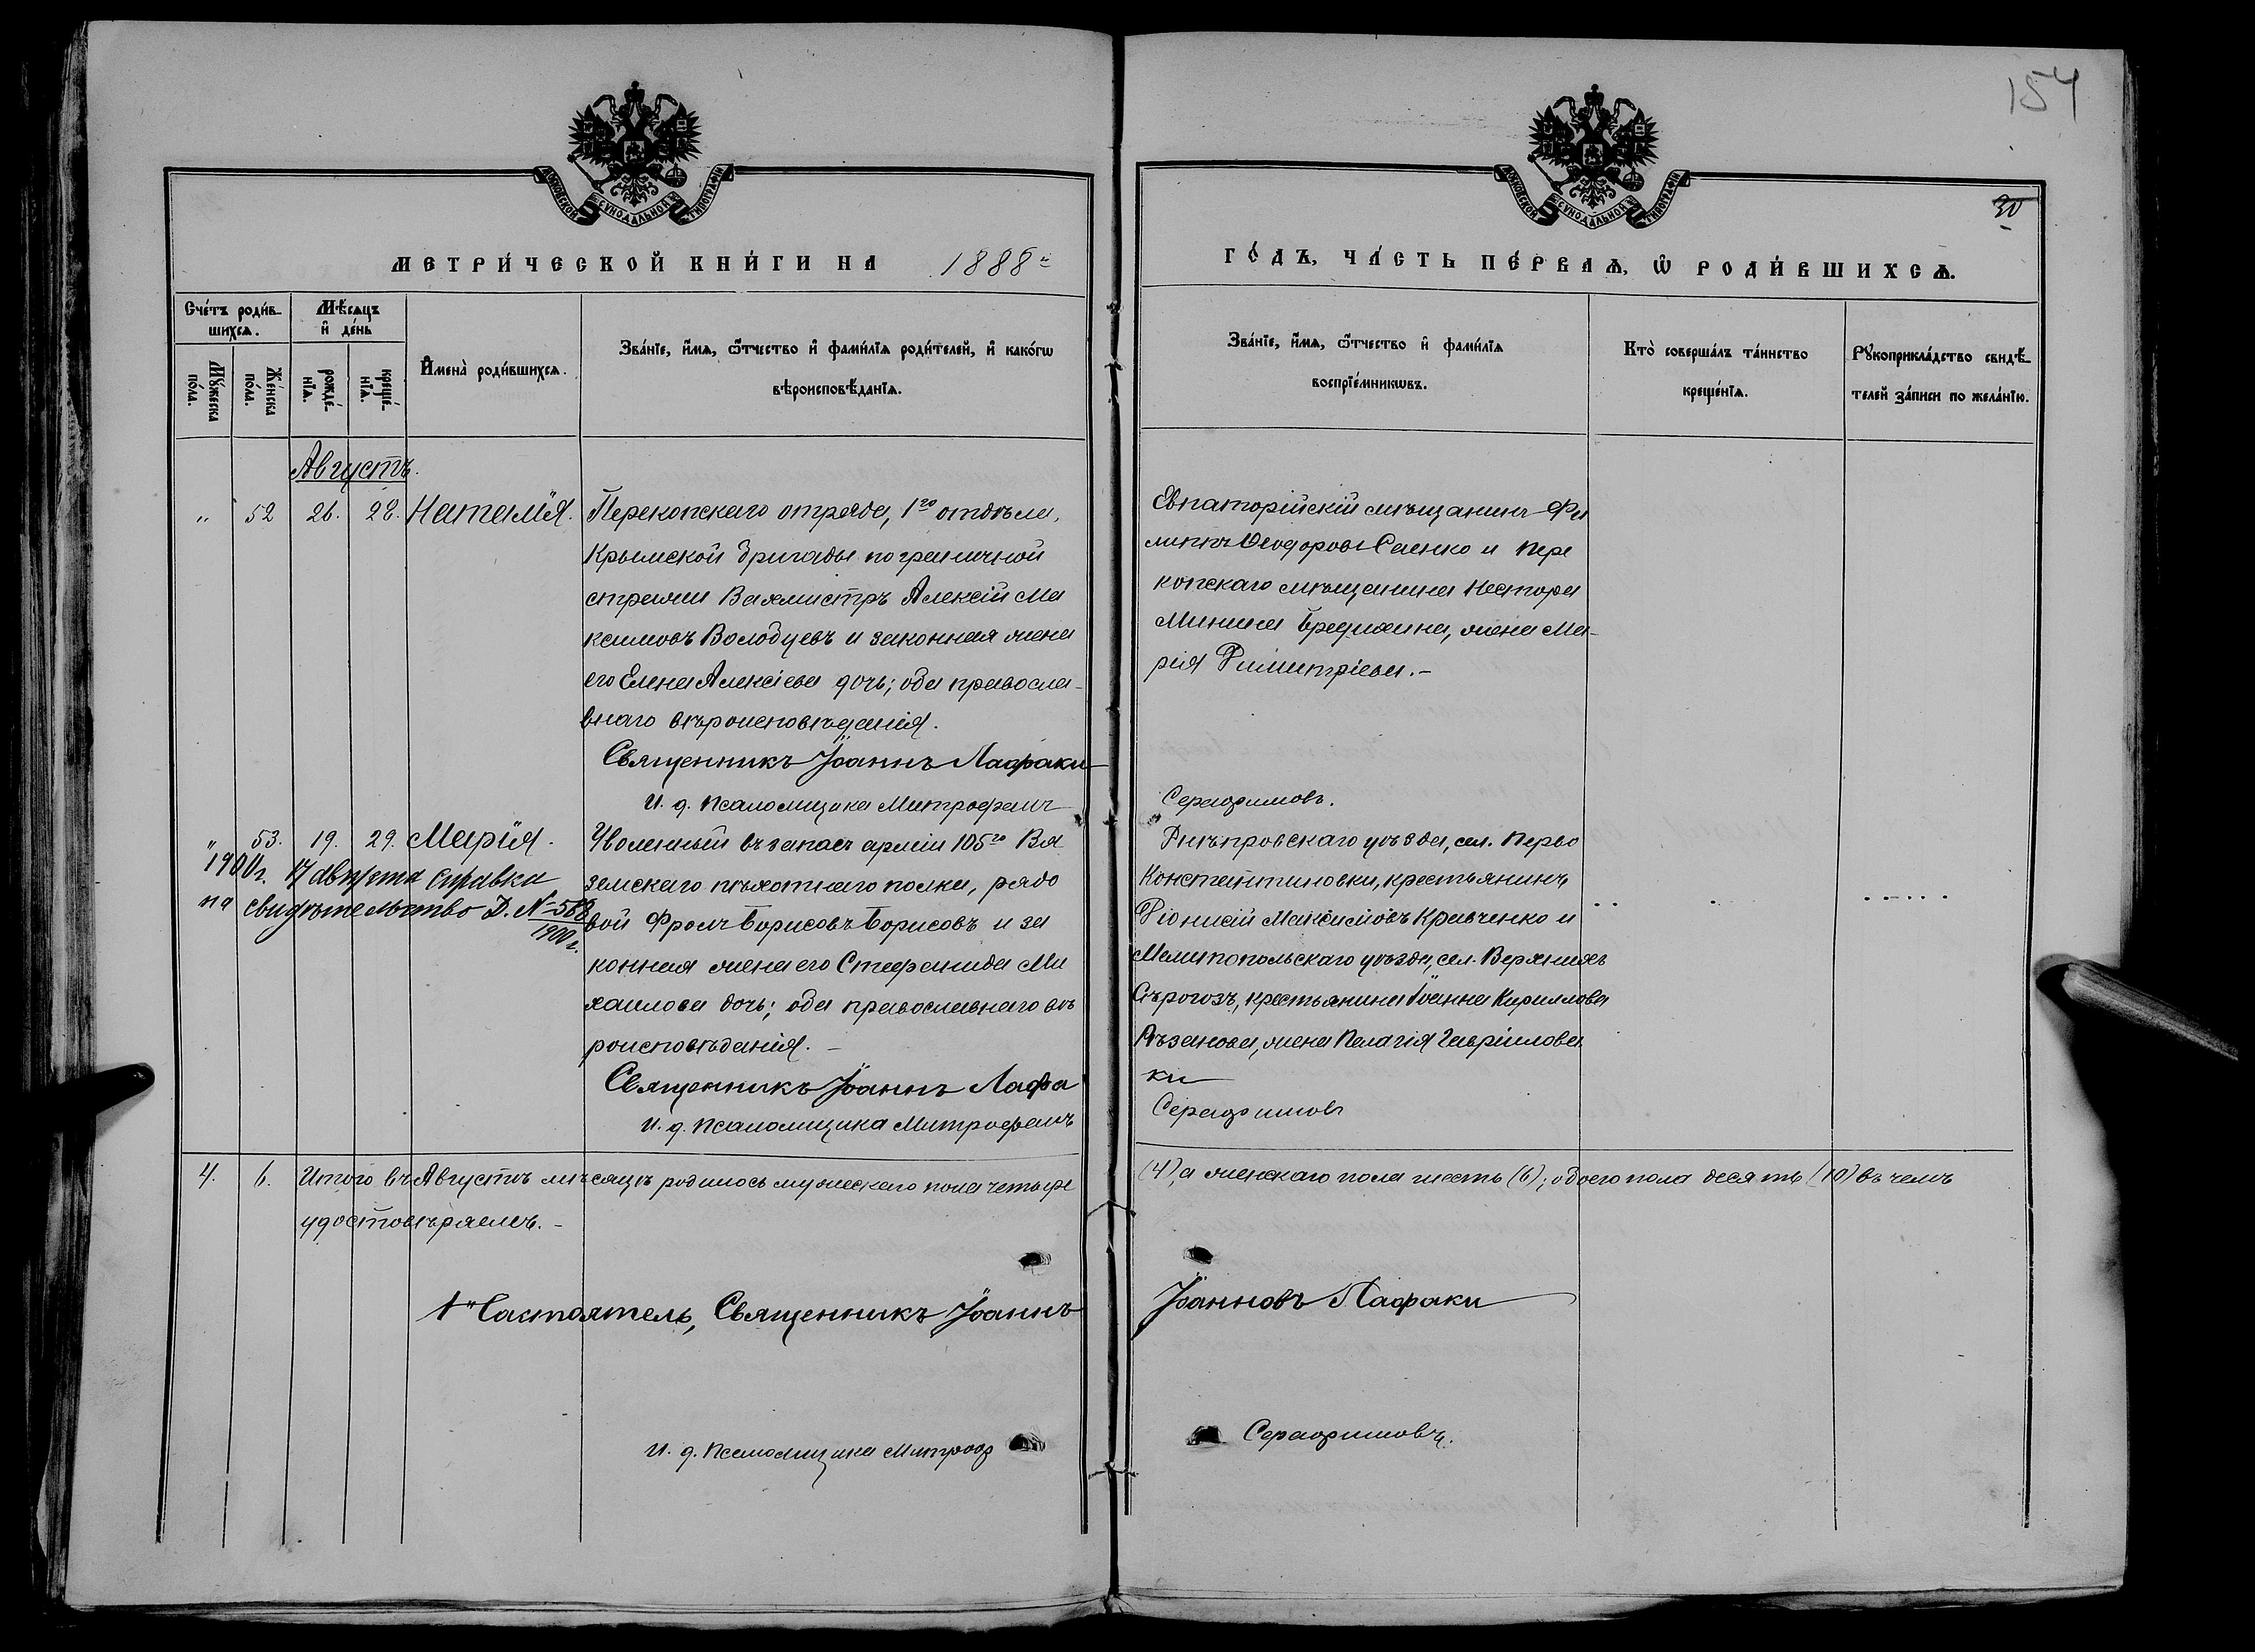 154
30
МОСКОВСКОЙ СУНОДАЛЬНОЙ ТИПОГРАФІИ
МОСКОВСКОЙ СУНОДАЛЬНОЙ ТИПОГРАФІИ
МЕТРИ́ЧЕСКОЙ КНИ́ГИ НА 1888й
ГО́ДЪ, ЧА́СТЬ ПЕ́РВАѦ, Ѡ҆ РОДИ́ВШИХСѦ.
Сче́тъ роди́в-
шихсѧ.
Мꙋ́жеска
по́ла.
Же́нска
по́ла.
Мѣ́сѧцъ
и҆ де́нь
рожде́-
нїѧ.
креще́-
нїѧ.
И҆мена̀ роди́вшихсѧ.
Зва́нїе, и҆́мѧ, ѻ҆́тчество и҆ фами́лїѧ роди́телей, и҆ како́гѡ
вѣроисповѣ́данїѧ.
Зва́нїе, и҆́мѧ, ѻ҆́тчество и҆ фами́лїѧ
воспрїе́мникѡвъ.
Кто̀ соверша́лъ та́инство
креще́нїѧ.
Рꙋкоприкла́дство свидѣ́-
телей за́писи по жела́нїю.
Августъ.
„ 52 26. 28. Наталія.
Перекопскаго отряда, 1го отдѣла,
Крымской бригады пограничной
стражи Вахмистръ Алексій Ма
ксимовъ Володцевъ и законная жена
его Елена Алексіева дочь; оба правосла-
внаго вѣроисповѣданія.
Священникъ Іоаннъ Лафаки
И. д. Псаломщика Митрофанъ
Евпаторійскій мѣщанинъ Фи
липпъ Ѳеодоровъ Саенко и Пере
копскаго мѣщанина Нестора
Минина Бредихина, жена Ма-
рія Димитріева.-
Серафимовъ.
„ 53. 19. 29. Марія.
1900г. 17 августа справка
на свидѣтельство Д. №568
1900 г.
Уволенный въ запасъ арміи 105го Вя
земскаго пѣхотнаго полка, рядо
вой Фролъ Борисовъ Борисовъ и за
конная жена его Стефанида Ми
хаилова дочь; оба православнаго вѣ
роисповѣданія.-
Священникъ Іоаннъ Лафа
И. д. Псаломщика Митрофанъ
Днѣпровскаго уѣзда, сел. Перво
Константиновки, крестьянинъ
Діонисій Максимовъ Кравченко и
Мелитопольскаго уѣзда, сел. Верхнихъ
Сѣрогозъ, крестьянина Іоанна Кириллова
Рѣзанова, жена Пелагія Гавріилова
ки
Серафимовъ
4. 6. Итого въ Августѣ мѣсяцѣ родилось мужескаго пола четыре
(4), а женскаго пола шесть (6); обоего пола десять (10) въ чемъ
удостовѣряемъ.-
Настоятель, Священникъ Іоаннъ
Іоанновъ Лафаки
И. д. Псаломщика Митроф
Серафимовъ.